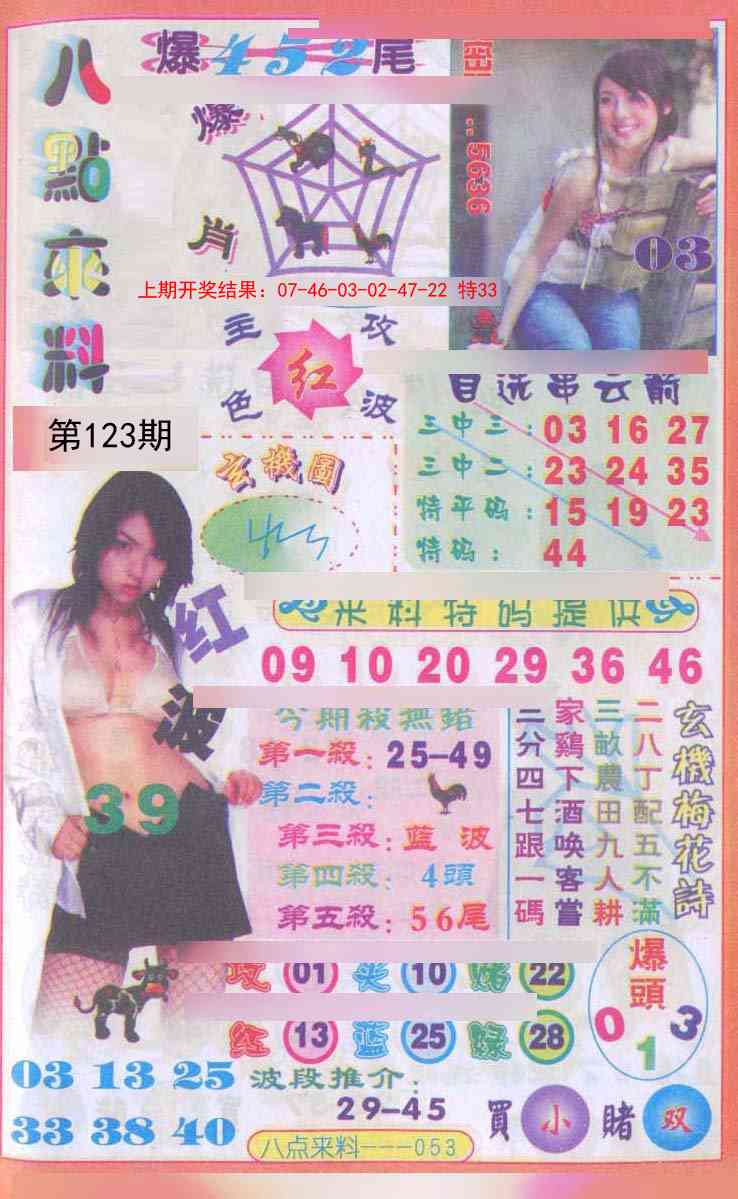 八點來料
爆452尾
爆肖
5636
03
上期开奖结果：07-46-03-02-47-22 特33
主攻
红
色波
第123期
自选串云箭
三中三：03 16 27
三中二：23 24 35
特平码：15 19 23
特码：44
玄機圖
来料特码提供
09 10 20 29 36 46
红波
39
今期殺無錯
第一殺：25-49
第二殺：
第三殺：藍波
第四殺：4頭
第五殺：56尾
玄機梅花詩
二八丁配五不滿
三畝農田九人耕
家鷄下酒唤客嘗
二分四七跟一碼
攻 01 10 赌 22
红 13 蓝 25 绿 28
爆頭
0 1 3
03 13 25
33 38 40
波段推介：
29-45
買小賭双
八点来料---053